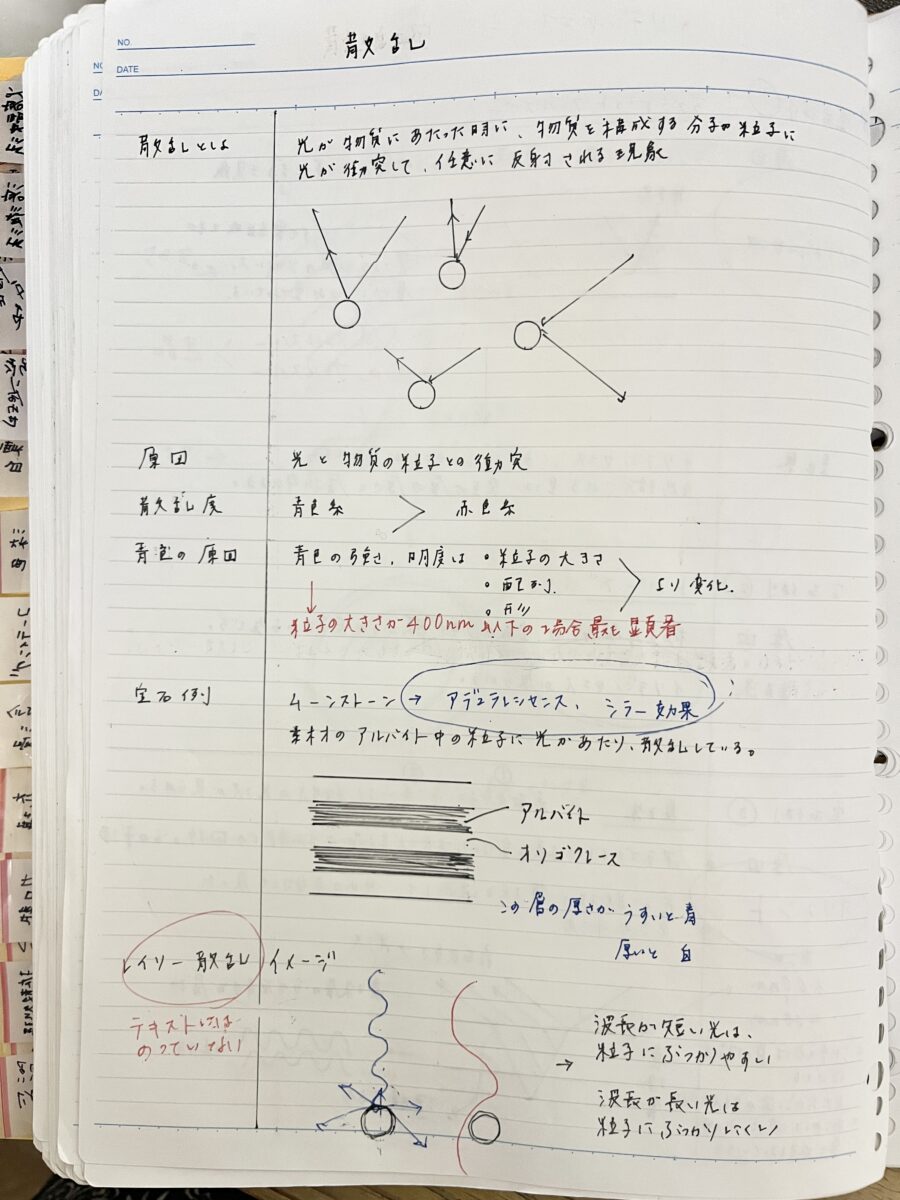 NO.
DATE
散乱
散乱とは
光が物質にあたった時に、物質を構成する分子や粒子に
光が衝突して、任意に反射される現象
原因
光と物質の粒子との衝突
散乱度
青色系 > 赤色系
青色の原因
青色の強さ、明度は ・粒子の大きさ
・配列
・形
より変化.
粒子の大きさが400nm以下の場合最も顕著
宝石例
ムーンストーン → アデュラレッセンス、シラー効果
素材のアルバイト中の粒子に光があたり、散乱している。
アルバイト
オリゴクレース
この層の厚さが うすいと青
厚いと 白
レイリー散乱 イメージ
テキストには
のっていない
→ 波長が短い光は、
粒子にぶつかりやすい
波長が長い光は
粒子にぶつかりにくい